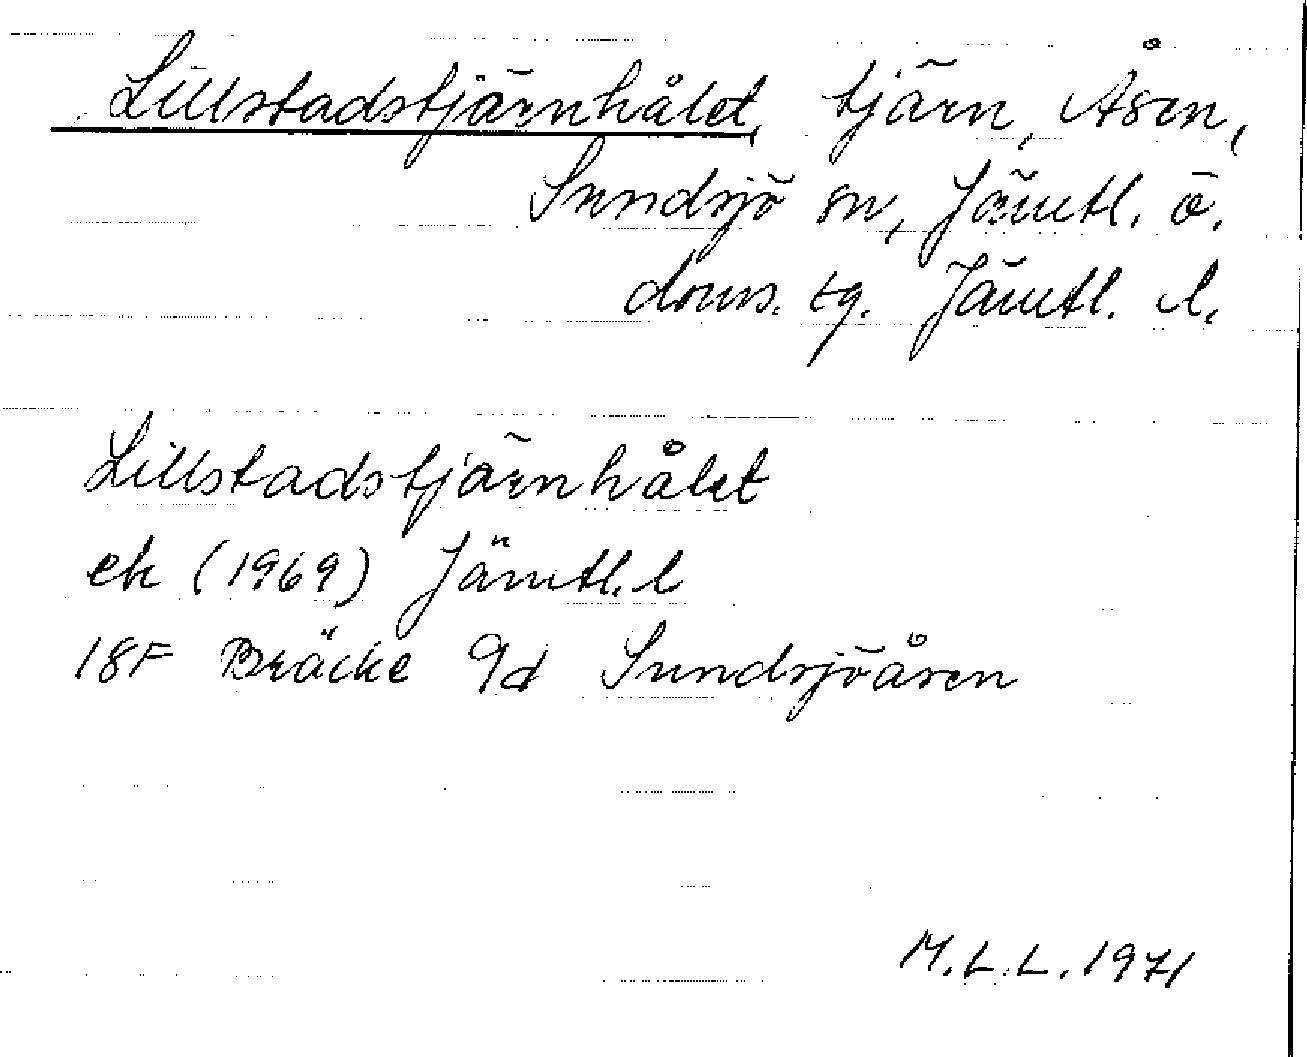 Lillstadstjärnhålet, tjärn, Åsen,
Sundsjö sn, Jämtl. ö.
doms. tg. Jämtl. l.
Lillstadstjärnhålet
ek (1969) Jämtl. l
18F Bräcke 9d Sundsjöåsen
M.L.L. 1971